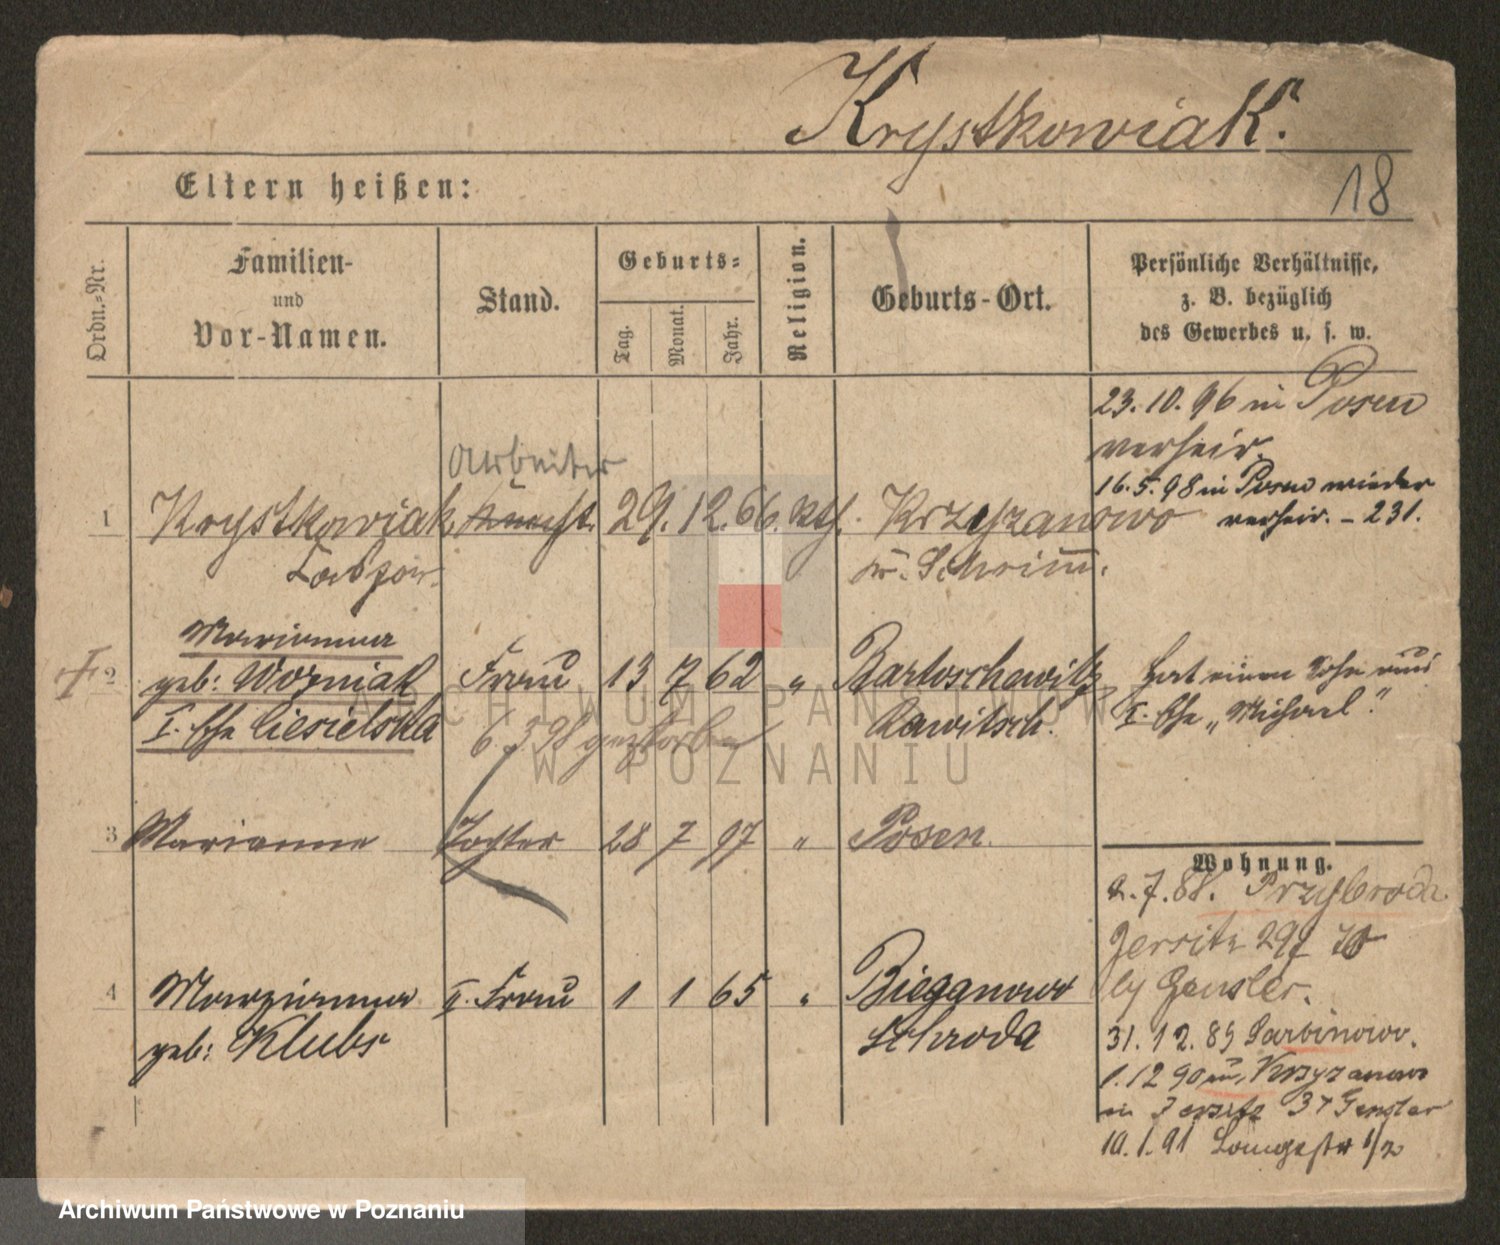 Krystkowiak.
18
Eltern heißen:
Ordn.-Nr.
Familien-
und
Vor-Namen.
Stand.
Geburts-
Tag.
Monat.
Jahr.
Religion.
Geburts-Ort.
Persönliche Verhältnisse,
z. B. bezüglich
des Gewerbes u. s. w.
23. 10. 96 in Posen
verheir.
16. 5. 98 in Posen wieder
verheir. - 231.
Arbeiter
1 Krystkowiak, Knecht. 29. 12. 66. kth. Krzyzanowo
Kr. Schrimm.
Marianna
2 geb: Wozniak Frau 13 7 62 " Bartoschewitz
I. Ehe Ciesielska 6. 3 98 gestorben Rawitsch.
Hat einen Sohn aus
I. Ehe „Michael".
3 Marianne Tochter 28 7 97 " Posen.
4 Marianna II. Frau 1 1 65 " Bieganowo
geb: Klubs Schroda
Wohnung.
2. 7. 88. Przybroda
Jersitz 29
by Gensler.
31. 12. 89 Sarbinowo.
1. 12 90 Krzyzanowo
in Jersitz 37 Gensler
10. 1. 91 1/2
ARCHIWUM PAŃSTWOWE
W POZNANIU
Archiwum Państwowe w Poznaniu